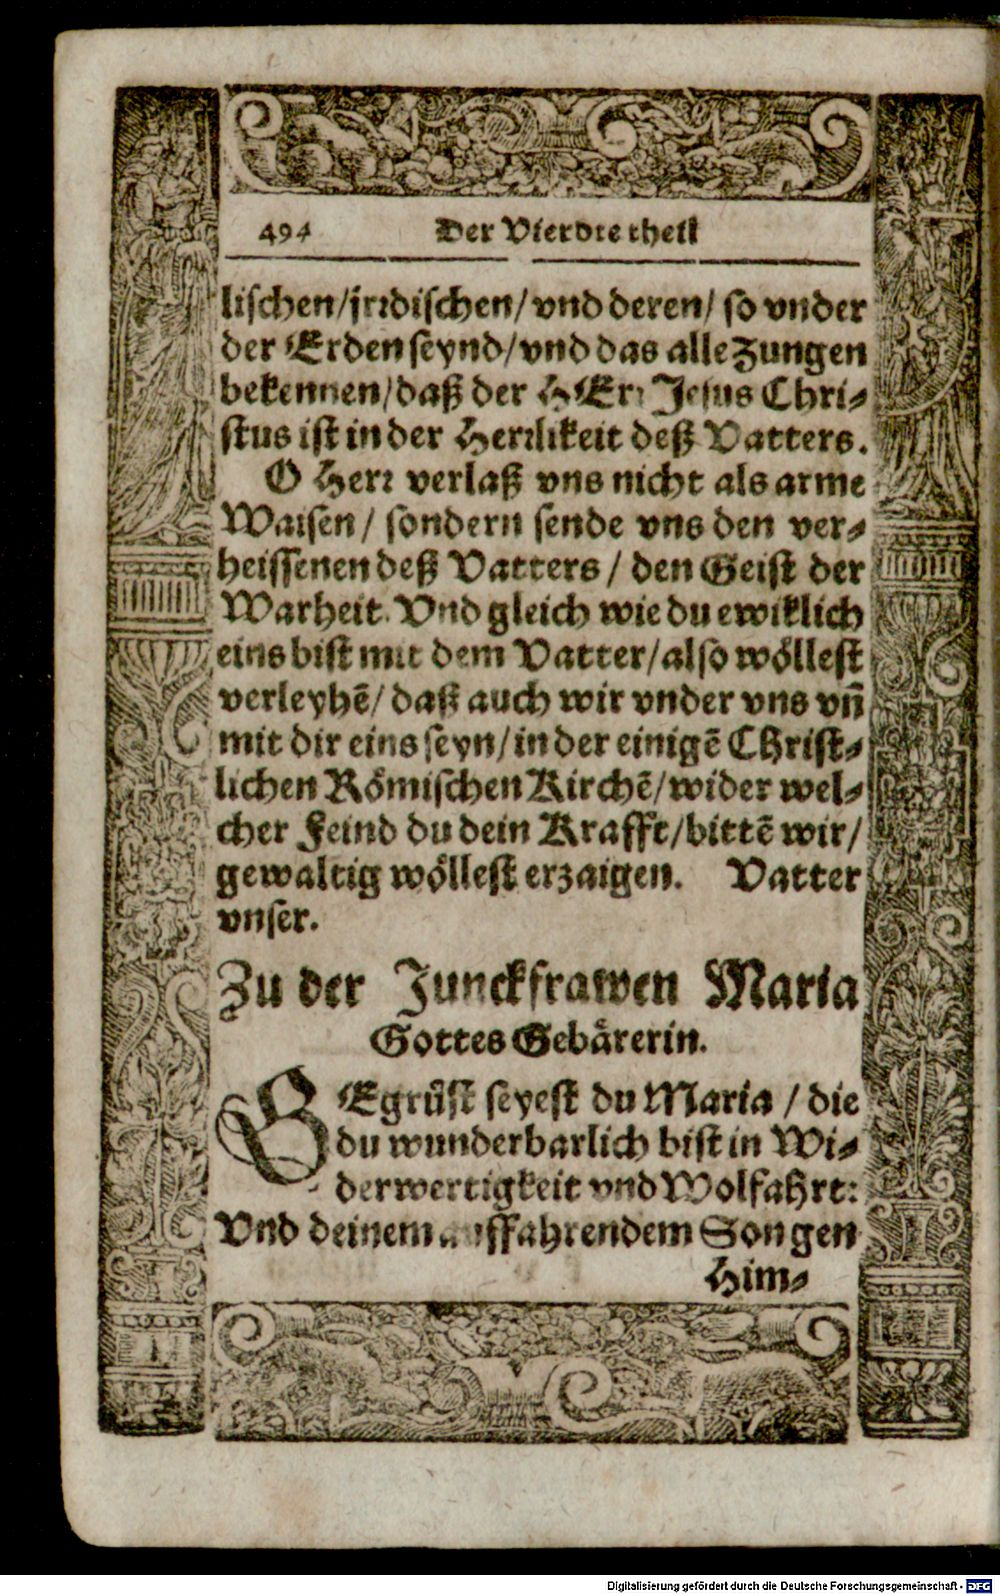 494 Der Vierdte theil
lischen/jrrdischen/vnd deren/ so vnder
der Erden seynd/vnd das alle Zungen
bekennen/daß der HErr Jesus Chri-
stus ist in der Herrlikeit deß Vatters.
O Herr verlaß vns nicht als arme
Waisen/ sondern sende vns den ver-
heissenen deß Vatters/ den Geist der
Warheit. Vnd gleich wie du ewiklich
eins bist mit dem Vatter/also wöllest
verleyhẽ/ daß auch wir vnder vns vñ
mit dir eins seyn/in der einigẽ Christ-
lichen Römischen Kirchẽ/wider wel-
cher Feind du dein Krafft/bittẽ wir/
gewaltig wöllest erzaigen. Vatter
vnser.
Zu der Junckfrawen Maria
Gottes Gebärerin.
BEgrüst seyest du Maria / die
du wunderbarlich bist in Wi-
derwertigkeit vnd Wolfahrt:
Vnd deinem auffahrendem Son gen
Him-
Digitalisierung gefördert durch die Deutsche Forschungsgemeinschaft - DFG